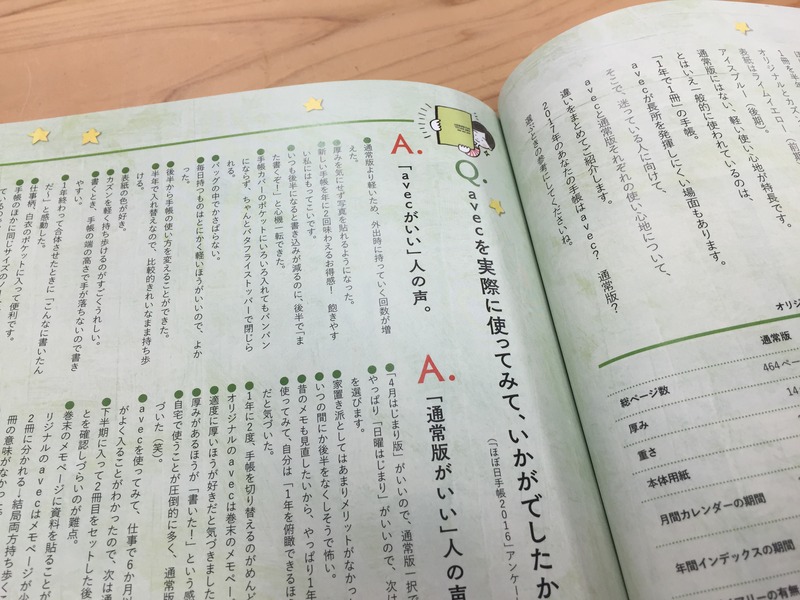 1冊を半
オリジナルとカズン
表紙はライムイエロー
アイスブルー（後期）。
通常版にはない、軽い使い心地が特長です。
とはいえ一般的に使われているのは、
「1年で1冊」の手帳。
avecが長所を発揮しにくい場面もあります。
そこで、迷っている人に向けて、
avecと通常版それぞれの使い心地について、
違いをまとめてご紹介します。
2017年のあなたの手帳はavec？　通常版？
選ぶときの参考にしてくださいね。
オリジ
通常版
総ページ数 464ペー
厚み 14
重さ
本体用紙
月間カレンダーの期間
年間インデックスの期間
の有無
Q. avecを実際に使ってみて、いかがでしたか
（「ほぼ日手帳2016」アンケー
A. 「avecがいい」人の声。
●通常版より軽いため、外出時に持っていく回数が増
えた。
●厚みを気にせず写真を貼れるようになった。
●新しい手帳を年に2回味わえるお得感！　飽きやす
い私にはもってこいです。
●いつも後半になると書き込みが減るのに、後半で「ま
た書くぞ！」と心機一転できた。
●手帳カバーのポケットにいろいろ入れてもパンパン
にならず、ちゃんとバタフライストッパーで閉じら
れる。
●バッグの中でかさばらない。
●毎日持つものはとにかく軽いほうがいいので、よか
った。
●後半から手帳の使い方を変えることができた。
●半年で入れ替えなので、比較的きれいなまま持ち歩
ける。
●表紙の色が好き。
●カズンを軽く持ち歩けるのがすごくうれしい。
●書くとき、手帳の端の高さで手が落ちないので書き
やすい。
●1年終わって合体させたときに「こんなに書いたん
だー」と感動した。
●仕事柄、白衣のポケットに入って便利です。
●手帳のほかに同じサイズのノ
A. 「通常版がいい」人の声
●「4月はじまり版」がいいので、通常版一択で
●やっぱり「日曜はじまり」がいいので、次は
を選びます。
●家置き派としてはあまりメリットがなかっ
●いつの間にか後半をなくしそうで怖い。
●昔のメモも見直したいから、やっぱり1年
●使ってみて、自分は「1年を俯瞰できるほ
だと気づいた。
●1年に2度、手帳を切り替えるのがめんど
●オリジナルのavecは巻末のメモペー
●適度に厚いほうが好きだと気づきました
●厚みがあるほうが「書いた！」という感
●自宅で使うことが圧倒的に多く、通常版
づいた（笑）。
●avecを使ってみて、仕事で6か月以
がよく入ることがわかったので、次は通
●下半期に入って2冊目をセットした後
とを確認しづらいのが難点。
●巻末のメモページに資料を貼ることが
リジナルのavecはメモページが少
●2冊に分かれる→結局両方持ち歩くこ
冊意味がなかった。